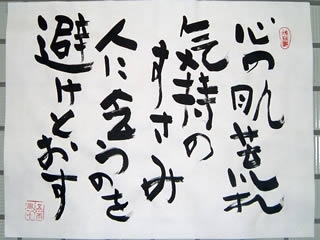 心の肌荒れ
気持の
すさみ
人に会うのを
避けとおす